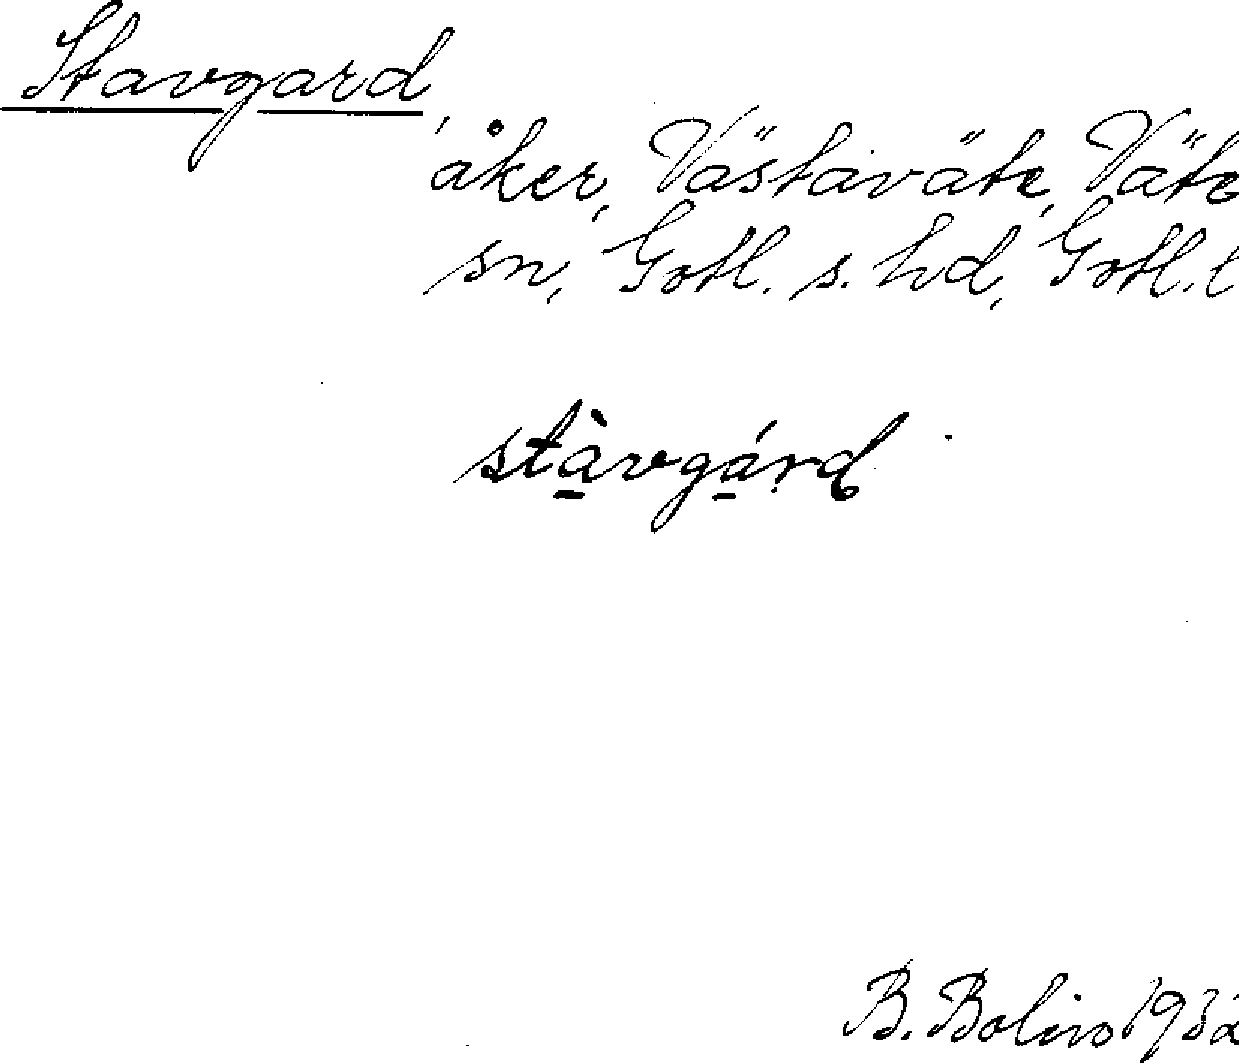 Stavgard,
åker, Västaväte, Väte
sn, Gotl. s. hd, Gotl. l
stàvgárd
B. Bolin 1932